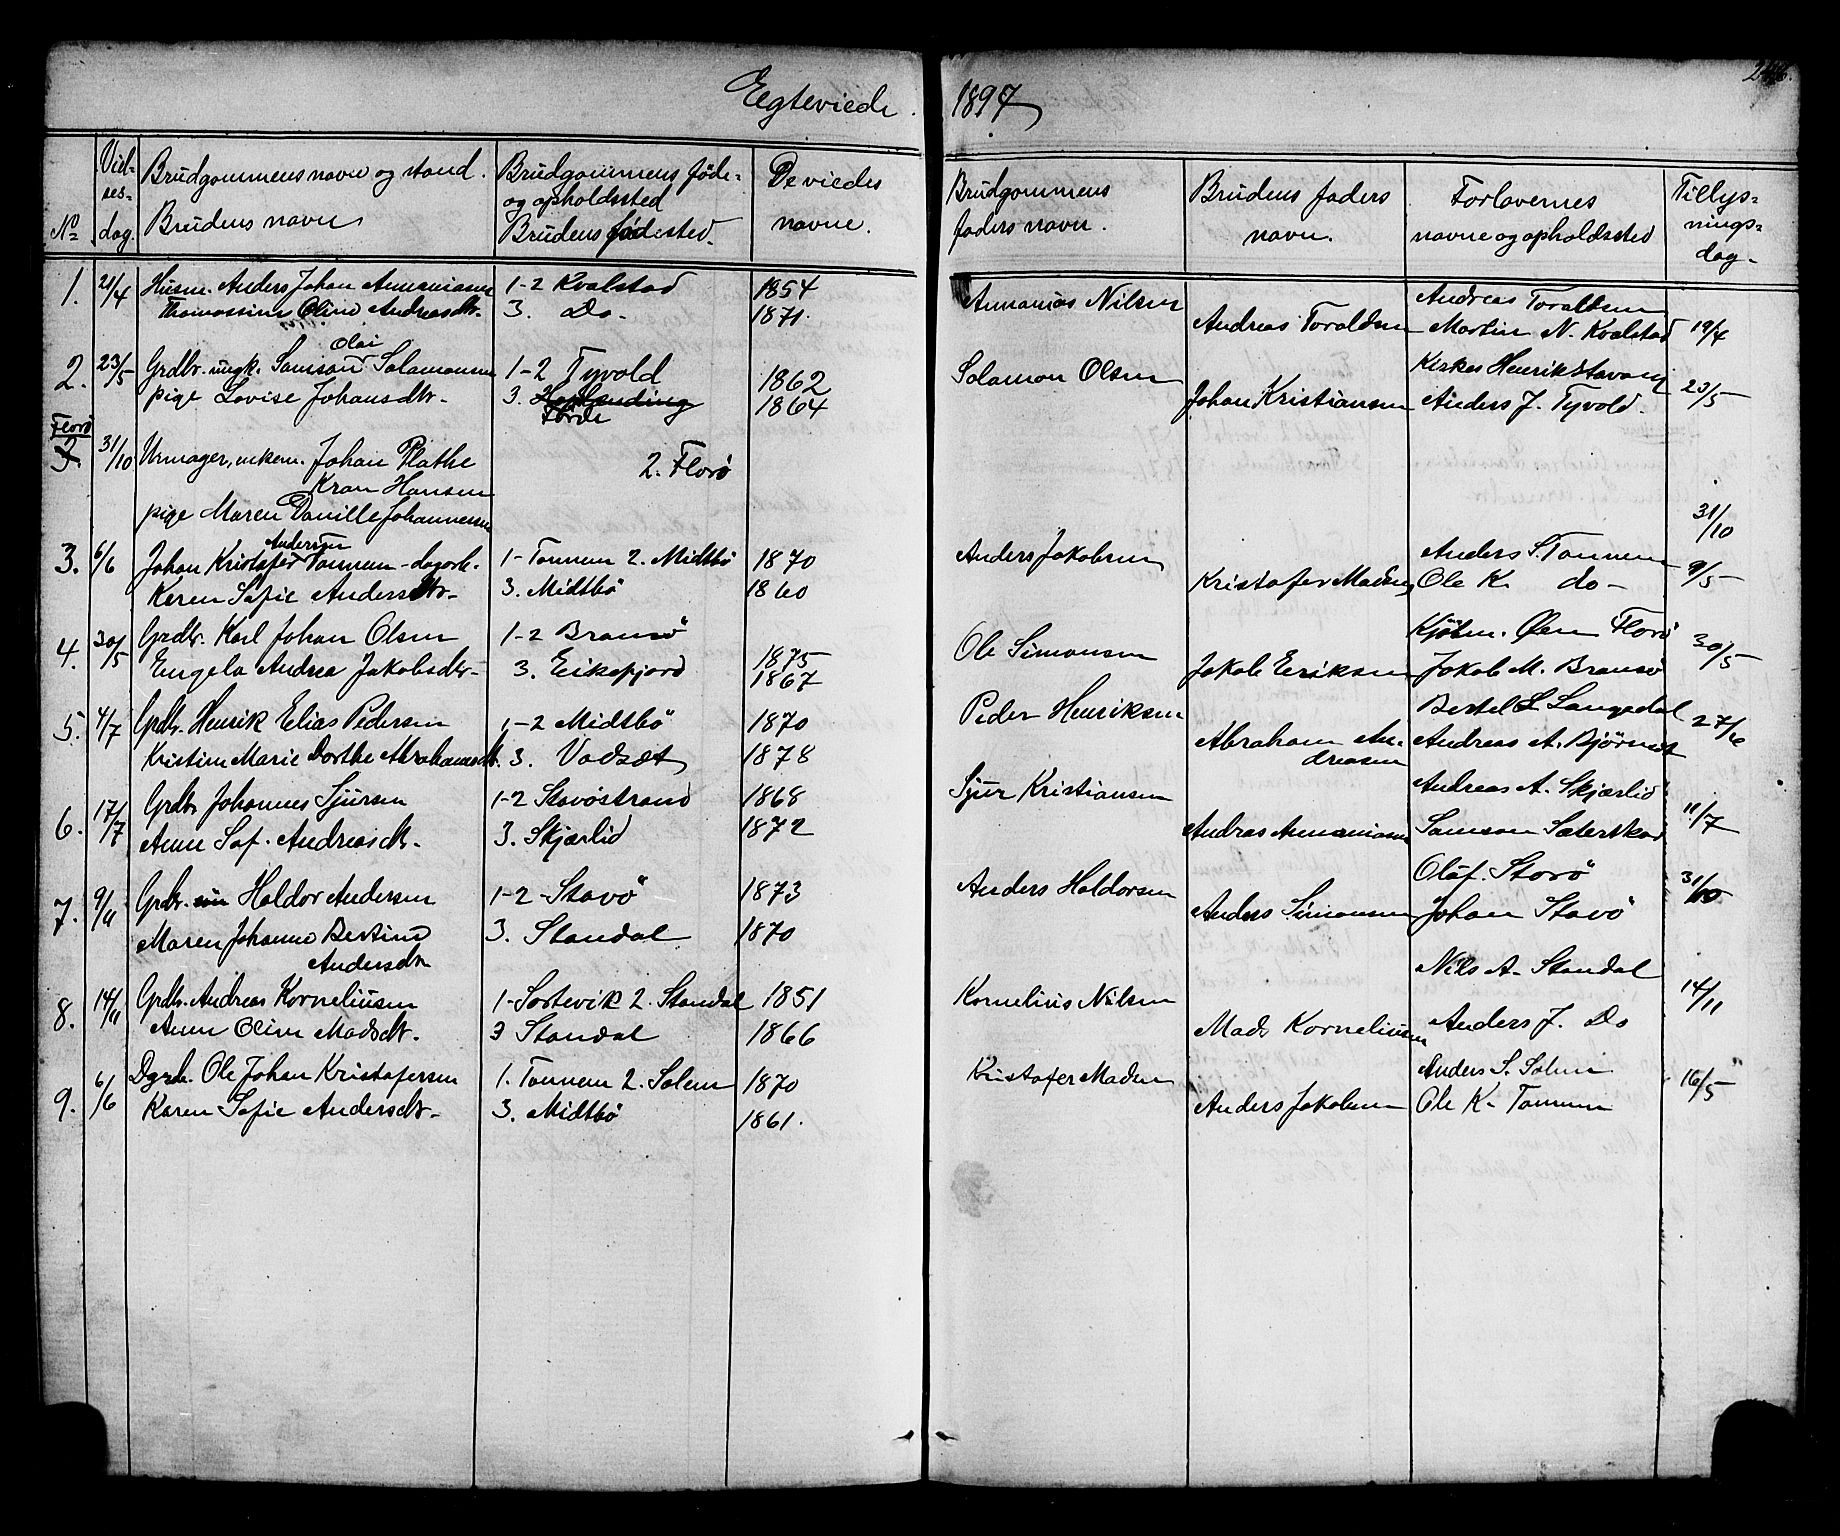 Egteviede. 1897
No
Vielsesdag.
Brudgommens navn og stand.
Brudens navn
Brudgommens føde-
og opholdssted
Brudens fødested.
De viedes
navne.
Brudgommens
faders navn.
Brudens faders
navn.
Forlovernes
navne og opholdssted
Tillys-
nings-
dag.
1. 21/4 Husm. Anders Johan Ananiasen 1-2 Kvalstad 1854 Annanias Nilsen Andreas Toraldsen
Oline Andreasdtr. 3. Do. 1871 Andreas Toraldsen Martin N. Kvalstad 19/4
Olai
2. 23/5 Grdbr. ungk. Samson Salamonsen 1-2 Tyvold 1862 Salamon Olsen Henrik Stavang
pige Lovise Johansdtr. 3. 1864 Johan Kristiansen Anders J. Tyvold. 23/5
Førde
Florø
3. 31/10 Urmager, enkem. Johan Plathe 2. Florø
Kran Hansen
pige Maren Danille Johannesen 31/10
Andersen
3. 6/6 Johan Kristofer Tonnem - dagarb. 1- Tonnem 2. Midtbö 1870 Anders Jakobsen Anders S. Tonnem
Karen Sofie Andersdtr. 3. Midtbö 1860 Kristofer Madsen Ole K. do- 9/5
4. 30/5 Grdbr. Karl Johan Olsen 1-2 Bransö 1875 Ole Simonsen Kjöbm. Øen Florø
Engela Andrea Jakobsdtr. 3. Eikefjord 1867 Jakob Eriksen Jakob M. Bransö 30/5
5. 4/7 Grdbr. Henrik Elias Pedersen 1-2 Midtbö 1870 Peder Henriksen Bertel L Langedal
Kristine Marie Dorthe Abrahamsdtr. 3. Vadsæt 1878 Abraham An-
dreasen Andreas A. Bjørnset 27/6
6. 17/7 Grdbr Johannes Sjursen 1-2 Stavöstrand 1868 Sjur Kristiansen Andreas A. Skjærlid
Anne Sof. Andreasdtr. 3. Skjærlid 1872 Andras Annaniasen Samson Sæterskar 11/7
7. 9/11 Grdbr. Haldor Andersen 1-2 Stavö 1873 Anders Haldorsen Oluf. Storö
Maren Johanne Bertine 3. Standal 1870 Anders Simonsen Johan Stavö 31/10
Andersdtr
8. 14/11 Grdbr. Andreas Korneliusen 1- Sortevik 2. Standal 1851 Kornelius Nilsen Nils A. Standal
Anne Oline Madsdtr. 3 Standal 1866 Mads Korneliusen Anders J. Do 14/11
9. 6/6 Dgarb. Ole Johan Kristofersen 1. Tonnem 2. Solem 1870 Kristofer Madsen Anders S. Solem
Karen Sofie Andersdtr. 3. Midtbö 1861. Anders Jakobsen Ole K. Tonnem 16/5